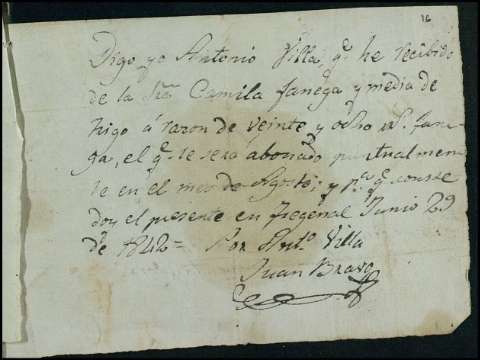 16
Digo yo Antonio Villa, q.e he recibido
de la Sra Camila fanega y media de
trigo á razon de veinte y ocho r.s fane-
ga, el q.e le será abonado puntualmen-
te en el mes de Agosto; y p.a q.e conste
doy el presente en Fregenal Junio 29
de 1842 = Por Anto. Villa
Juan Bravo